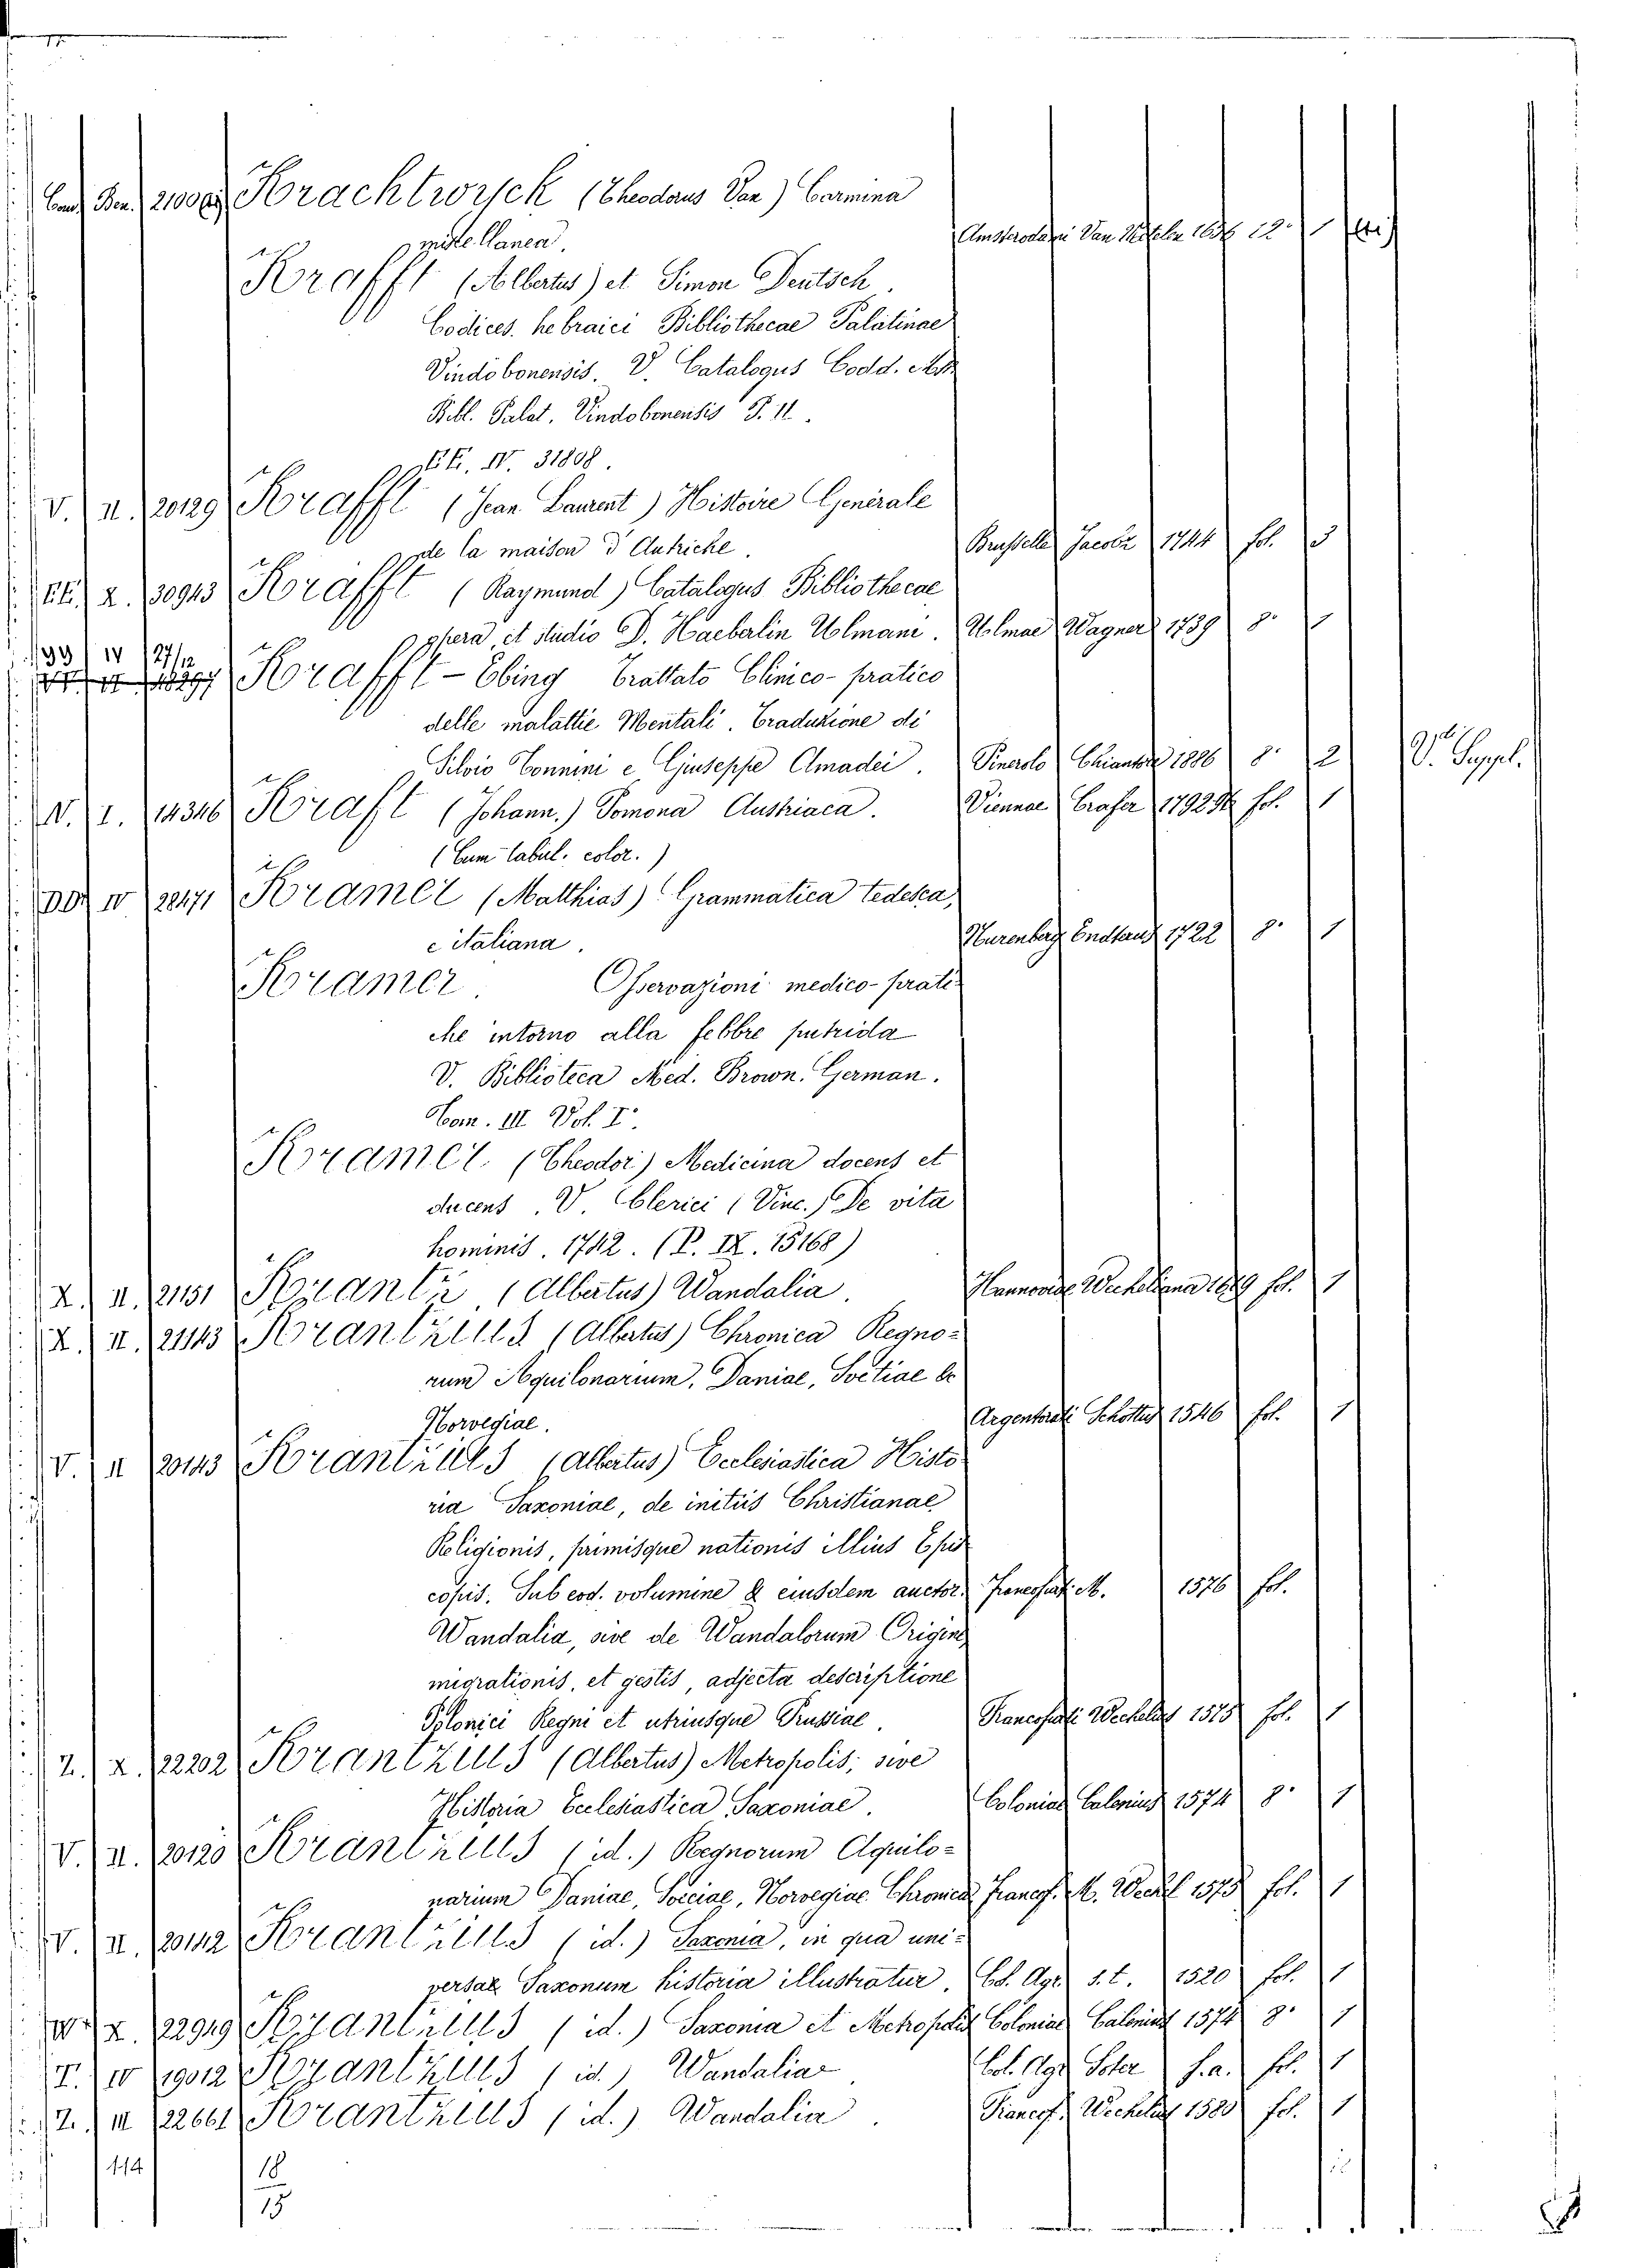 Ben. 21000 Krachtwyck (Theodorus Van) Carmina
miscellanea. Amsterodami Van 12. 1
Krafft (Albertus) et Simon Deutsch.
Codices hebraici Bibliothecae Palatinae
Vindobonensis. V. Catalogus Codd. Mss.
Bibl. Palat. Vindobonensis P. II.
EE. IV. 31808.
V. II. 20129 Krafft (Jean Laurent) Histoire Générale
de la maison d'Autriche. Brusselle Jacobz 1744 fol. 3
EE. X. 30943 Krafft (Raymund) Catalogus Bibliothecae
opera et studio D. Haeberlin Ulmani. Ulmae Wagner 1739 8. 1
99 IV 27/12
Krafft-Ebing Trattato Clinico-pratico
delle malattie Mentali. Traduzione di
Silvio Tonnini e Giuseppe Amadei. Pinerolo Chiantore 1886 8. 2 V. Suppl.
N. I. 14346 Kraft (Johann.) Pomona Austriaca. Viennae Grafer 1792 fol. 1
(Cum tabul. color.)
DD IV 28471 Kramer (Matthias) Grammatica tedesca,
e italiana. Nurenberg Endtand 1722 8. 1
Kramer. Osservazioni medico-prati-
che intorno alla febbre putrida
V. Biblioteca Med. Brown. German.
Tom. III Vol. I.
Kramer. (Theodor) Medicina docens et
ducens. V. Clerici (Vinc.) De vita
hominis. 1742. (P. IX. 15168)
X. II. 21151 Krantz (Albertus) Wandalia. Hannoviae Wecheliana 1619 fol. 1
X. II. 21143 Krantzius (Albertus) Chronica Regno-
rum Aquilonarium, Daniae, Svetiae &
Norvegiae. Argentorati Schottus 1546 fol. 1
V. II 20143 Krantzius (Albertus) Ecclesiastica Histo
ria Saxoniae, de initiis Christianae
Religionis, primisque nationis illius Epis
copis. Sub eod. volumine & eiusdem auctor. Francofurti M. 1576 fol.
Wandalia, sive de Wandalorum Origine
migrationis, et gestis, adjecta descriptione
Polonici Regni et utriusque Prussiae. Francofurti Wechelus 1575 fol. 1
Z. X. 22202 Krantzius (Albertus) Metropolis; sive
Historia Ecclesiastica Saxoniae. Coloniae Calenius 1574 8. 1
V. II. 20120 Krantzius (id.) Regnorum Aquilo-
narium Daniae, Sveciae, Norvegiae Chronica Francof. M. Wechel 1575 fol. 1
V. II. 20142 Krantzius (id.) Saxonia, in qua uni-
versae Saxonum historia illustratur. Col. Agr. s.t. 1520 fol. 1
X. 22949 Krantzius (id.) Saxonia et Metropolis Coloniae Calenius 1574 8. 1
T. IV 19012 Krantzius (id.) Wandalia Col. Agr. Soter s.a. fol. 1
Z. III 22661 Krantzius (id.) Wandalia. Francof. Wechelus 1580 fol. 1
114 18
15